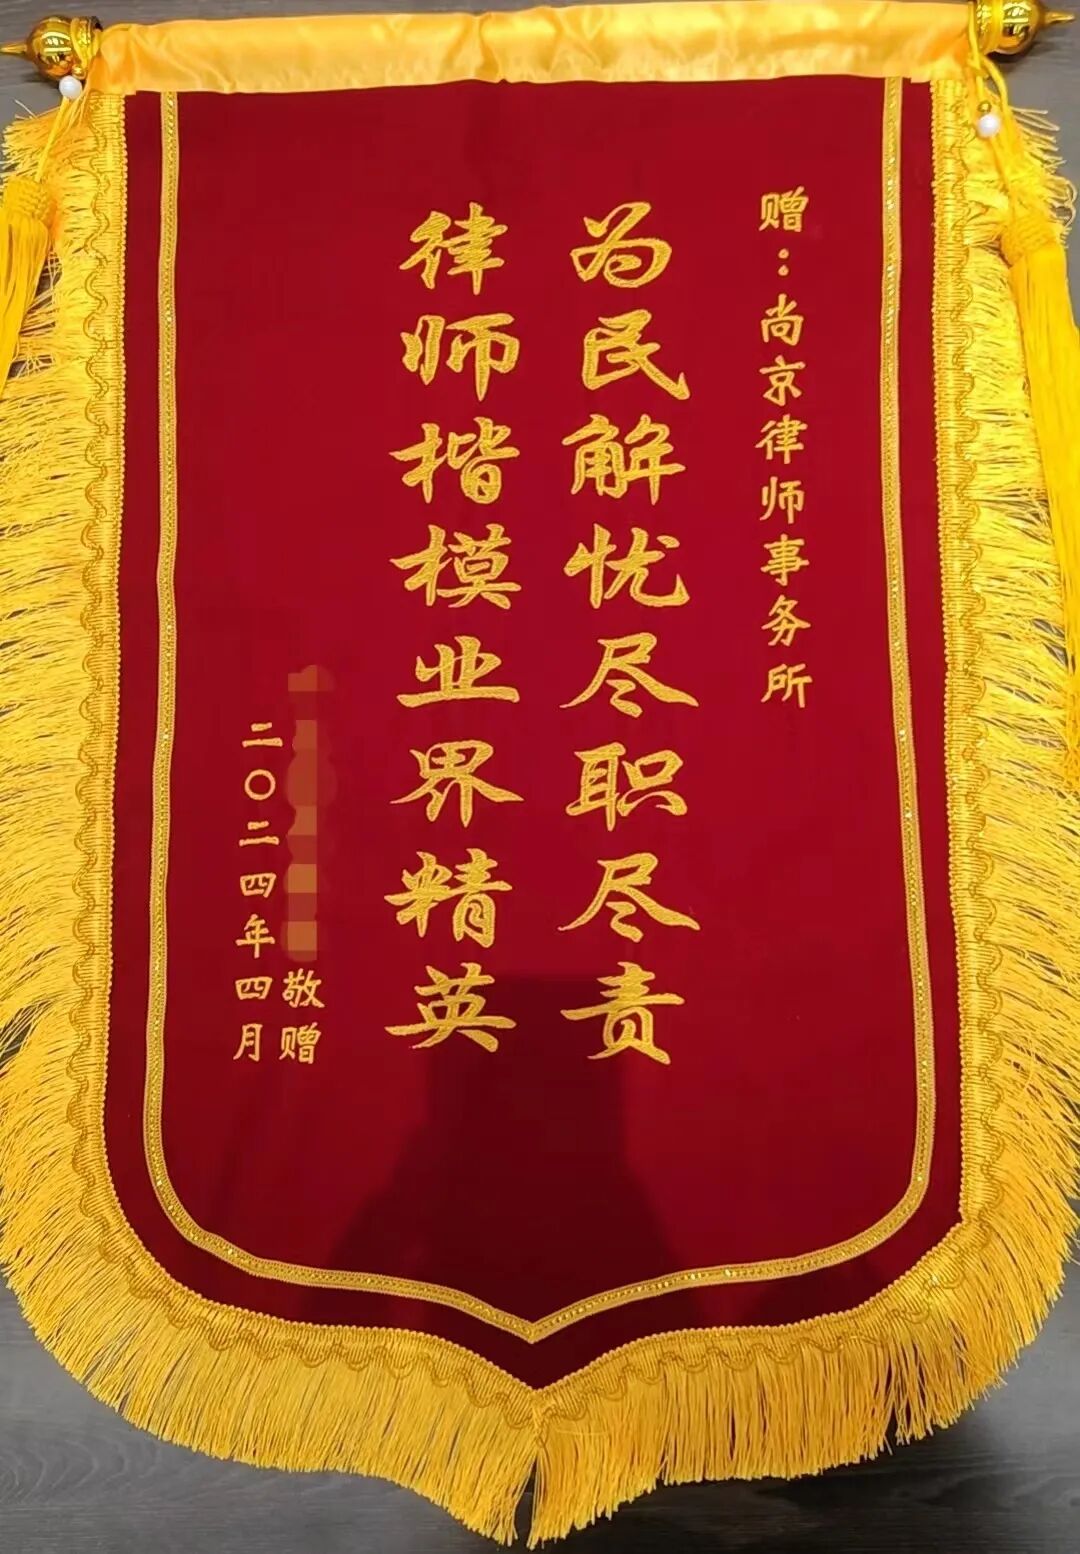 赠：尚京律师事务所
为民解忧尽职尽责
律师楷模业界精英
敬赠
二〇二四年四月